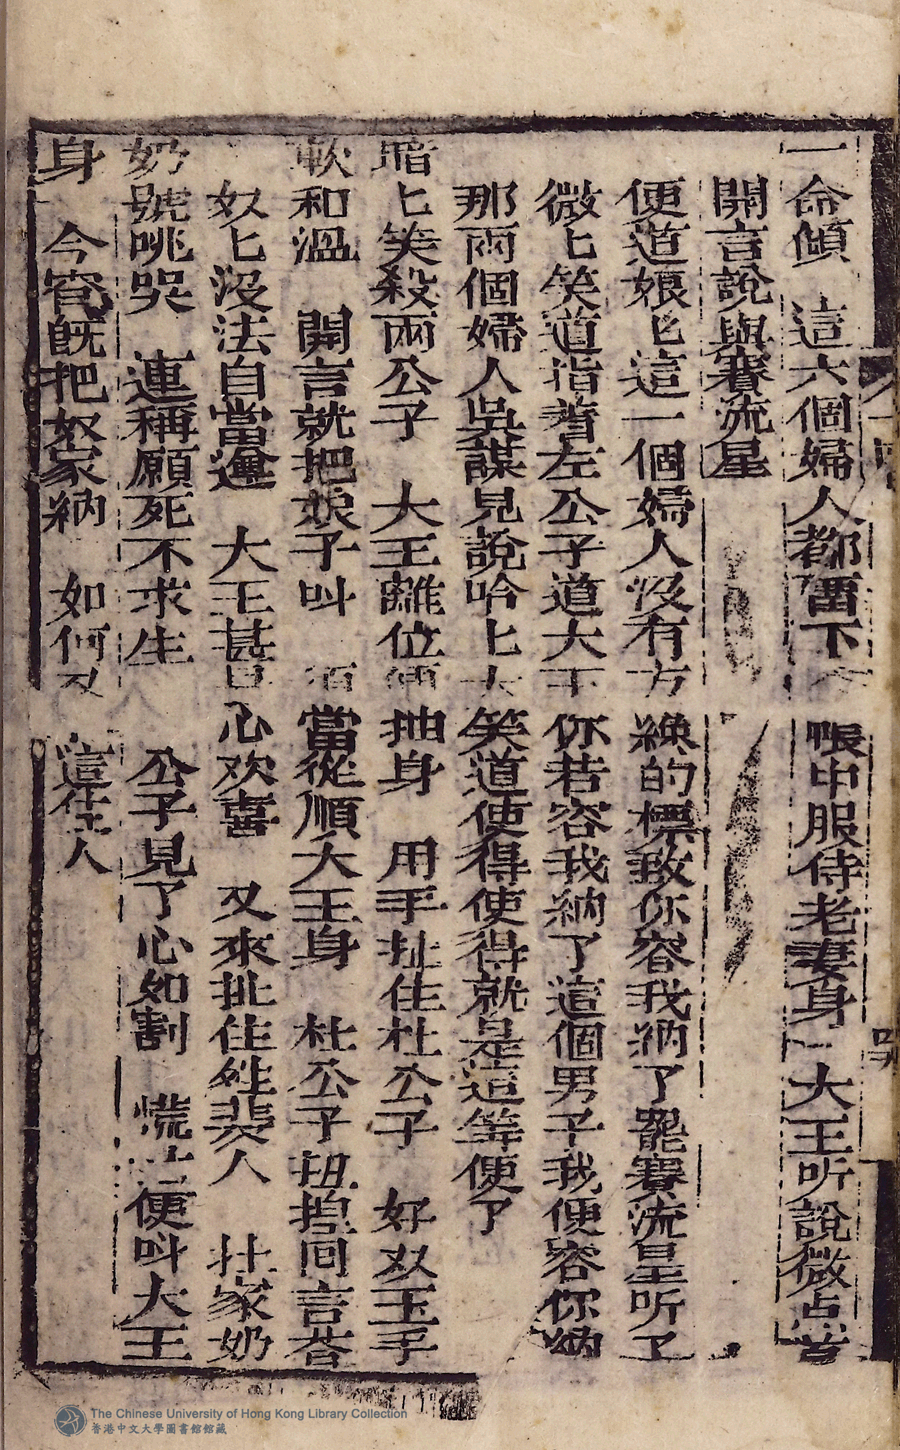 一命傾　這六個婦人都畱下　眼中服侍老妻身　大王听說微点首
開言說與賽流星
便道娘匕這一個婦人没有方　綠的標致你容我納了罷賽流星听了
微匕笑道指着左公子道大王　你若容我納了這個男子我便容你納
那兩個婦人吳謀見說吟匕大　笑道使得使得就是這等便了
暗匕笑殺兩公子　大王離位便　抽身　用手扯住杜公子　好双玉手
軟和溫　開言就把娘子叫　　當從順大王身　杜公子扭揑囘言荅
奴匕没法自當運　大王甚是　心欢喜　又來扯住姓裴人　杜家奶
奶號咷哭　連稱願死不求生　公子見了心如割　慌忙便叫大王
身　今宵旣把奴家納　如何又　這佳人
The Chinese University of Hong Kong Library Collection
香港中文大學圖書館館藏